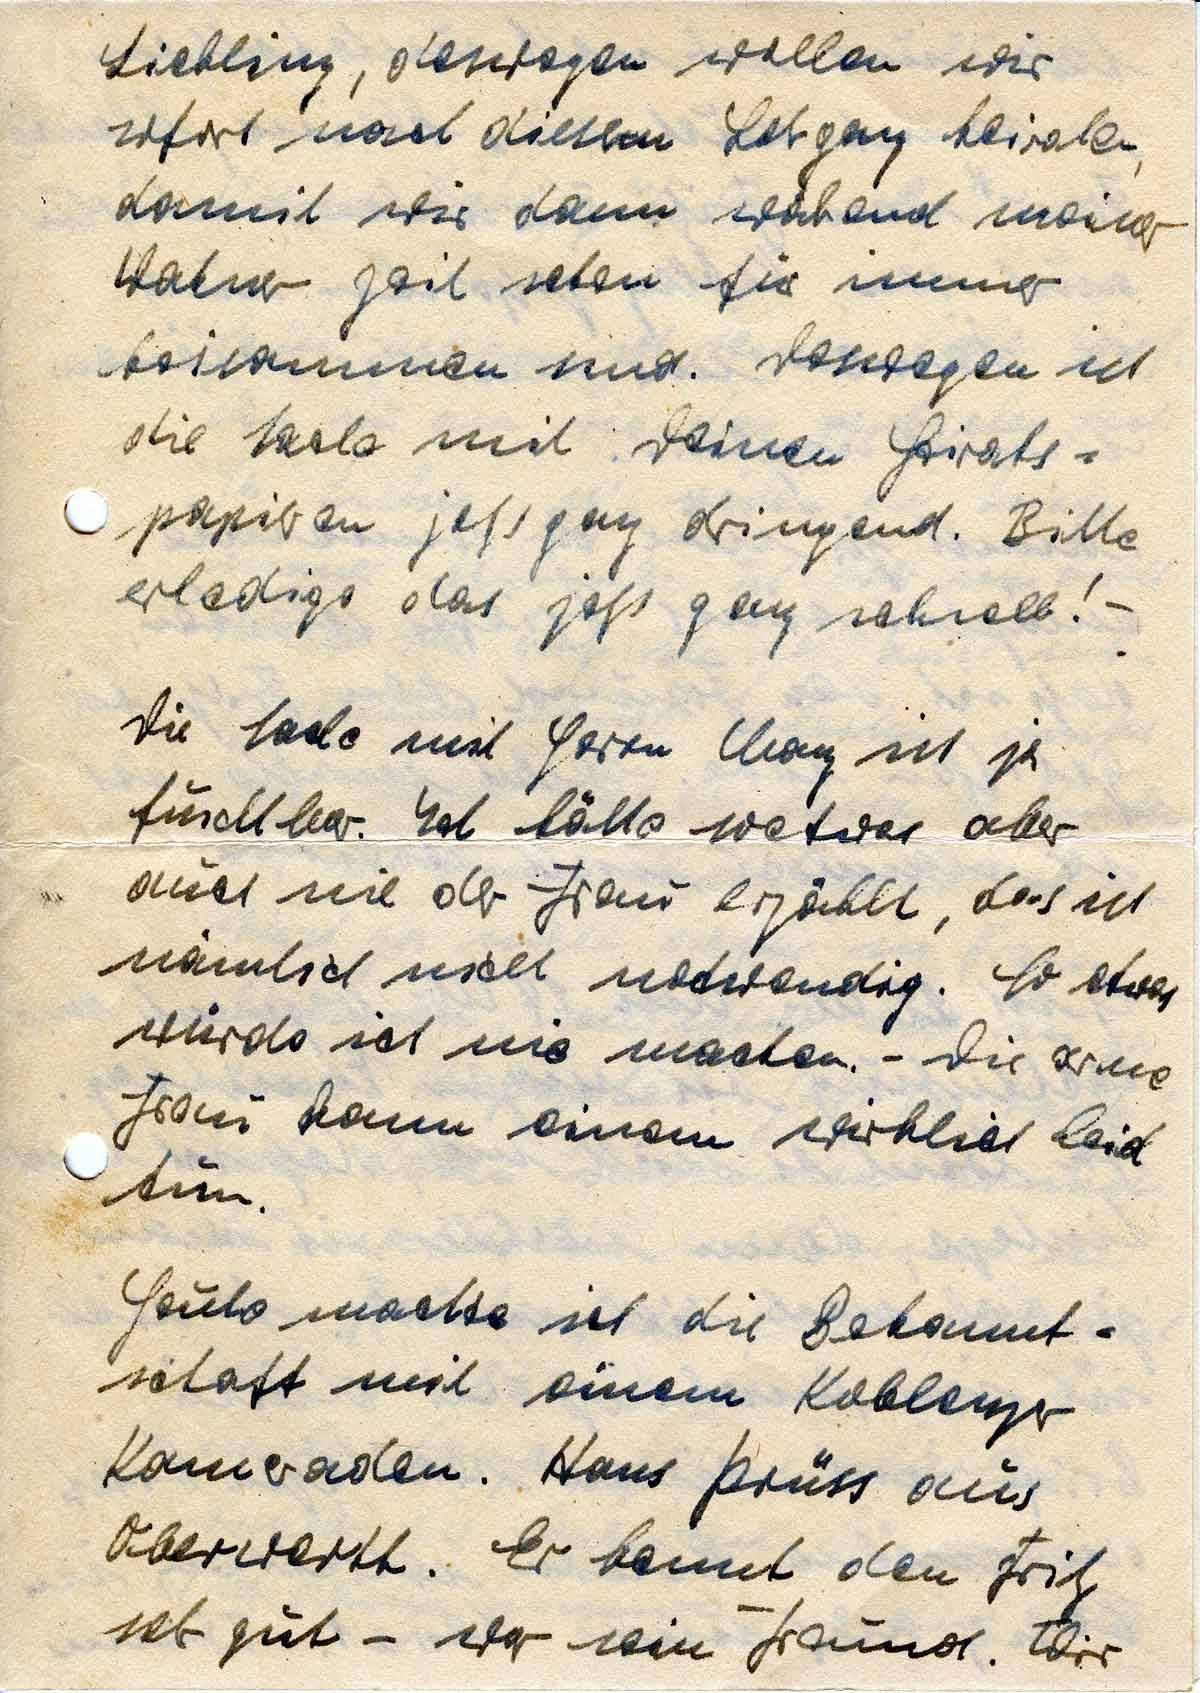 Liebling, deswegen wollen wir
sofort nach diesem Lehrgang heiraten,
damit wir dann während meiner
Wahner Zeit schon für immer
beisammen sind. Deswegen ist
die Sache mit Deinen Heirats-
papieren jetzt ganz dringend. Bitte
erledige das jetzt ganz schnell! -
Die Sache mit Herrn ist ja
furchtbar. Ich hätte so etwas aber
auch nie der Frau erzählt, das ist
nämlich nicht notwendig. So etwas
würde ich nie machen. - Die arme
Frau kann einem wirklich leid
tun.
Heute machte ich die Bekannt-
schaft mit einem Koblenzer
Kameraden. Hans Prüss aus
Oberwerth. Er kennt den Fritz
sehr gut - war sein Freund. Wir